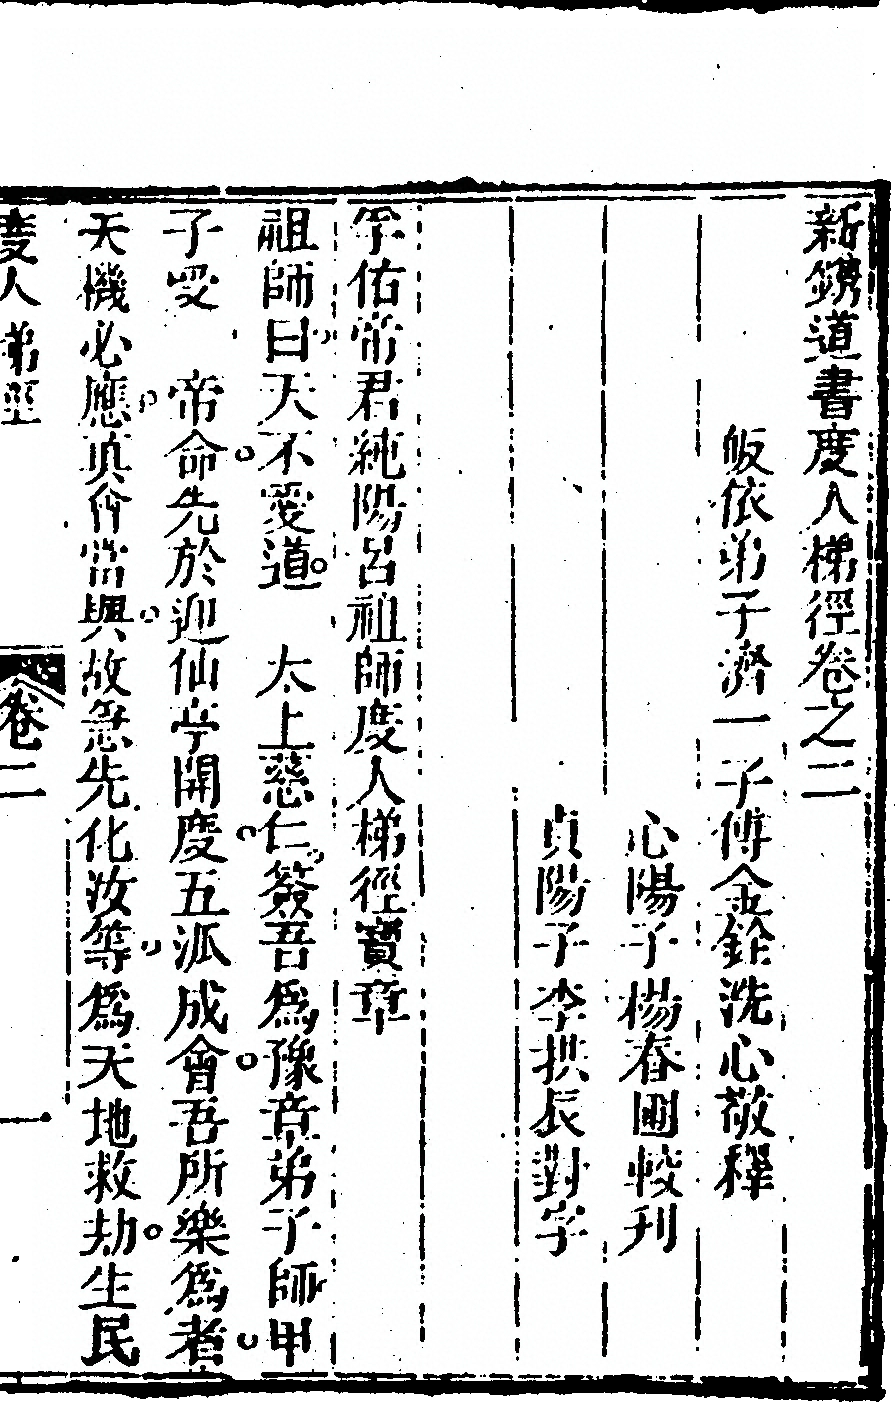 新鐫道書度人梯徑卷之二
皈依弟子濟一子傅金銓洗心敬釋
心陽子楊春圃較刋
貞陽子李拱辰對字
孚佑帝君純陽呂祖師度人梯徑寶章
祖師曰天不愛道 太上慈仁簽吾為豫章弟子師甲
子受 帝命先於迎仙亭開度五派成會吾所樂為者
天機必應真會當興故急先化汝等為天地救劫生民
度人梯徑 卷二 一